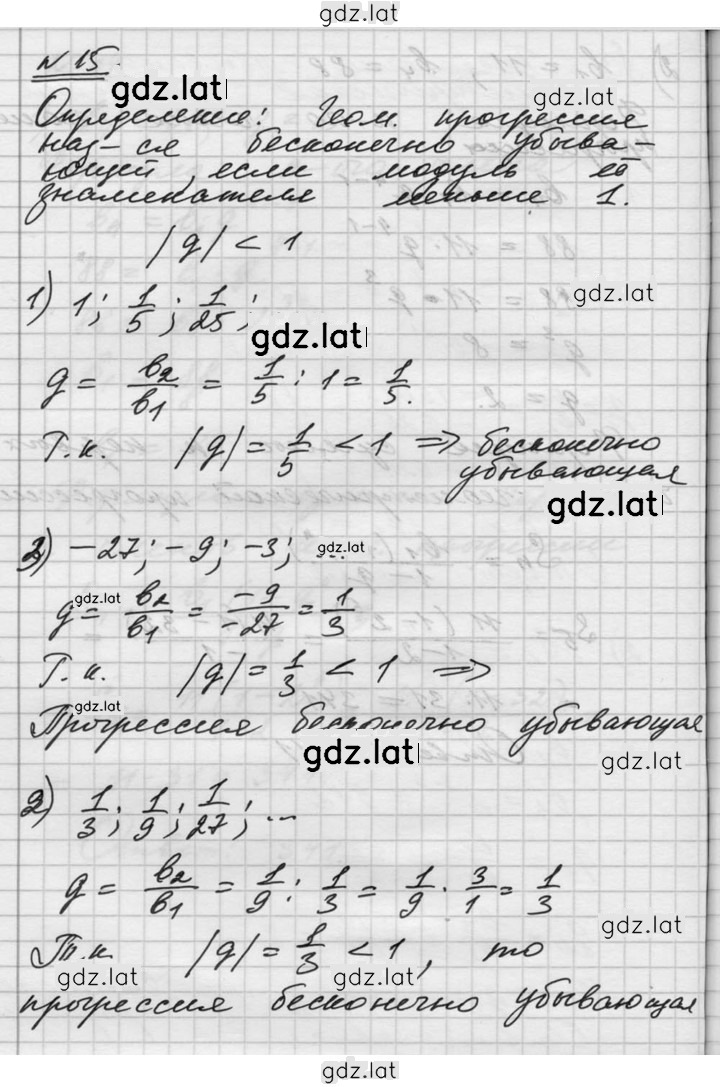 gdz.lat
№15.
gdz.lat
gdz.lat
Определение: Геом. прогрессия
наз-ся бесконечно убыва-
ющей, если модуль её
знаменателя меньше 1.
|q| < 1
gdz.lat
1) 1; 1/5; 1/25;
gdz.lat
q = b₂/b₁ = 1/5 : 1 = 1/5.
Т.к. |q| = 1/5 < 1 => бесконечно
убывающая
gdz.lat
3) -27; -9; -3; ...
gdz.lat
gdz.lat
q = b₂/b₁ = -9/-27 = 1/3
Т.к. |q| = 1/3 < 1 =>
gdz.lat
Прогрессия бесконечно убывающая
gdz.lat
gdz.lat
2) 1/3; 1/9; 1/27; ...
q = b₂/b₁ = 1/9 : 1/3 = 1/9 · 3/1 = 1/3
gdz.lat
Т.к. |q| = 1/3 < 1, то
gdz.lat
gdz.lat
прогрессия бесконечно убывающая
gdz.lat